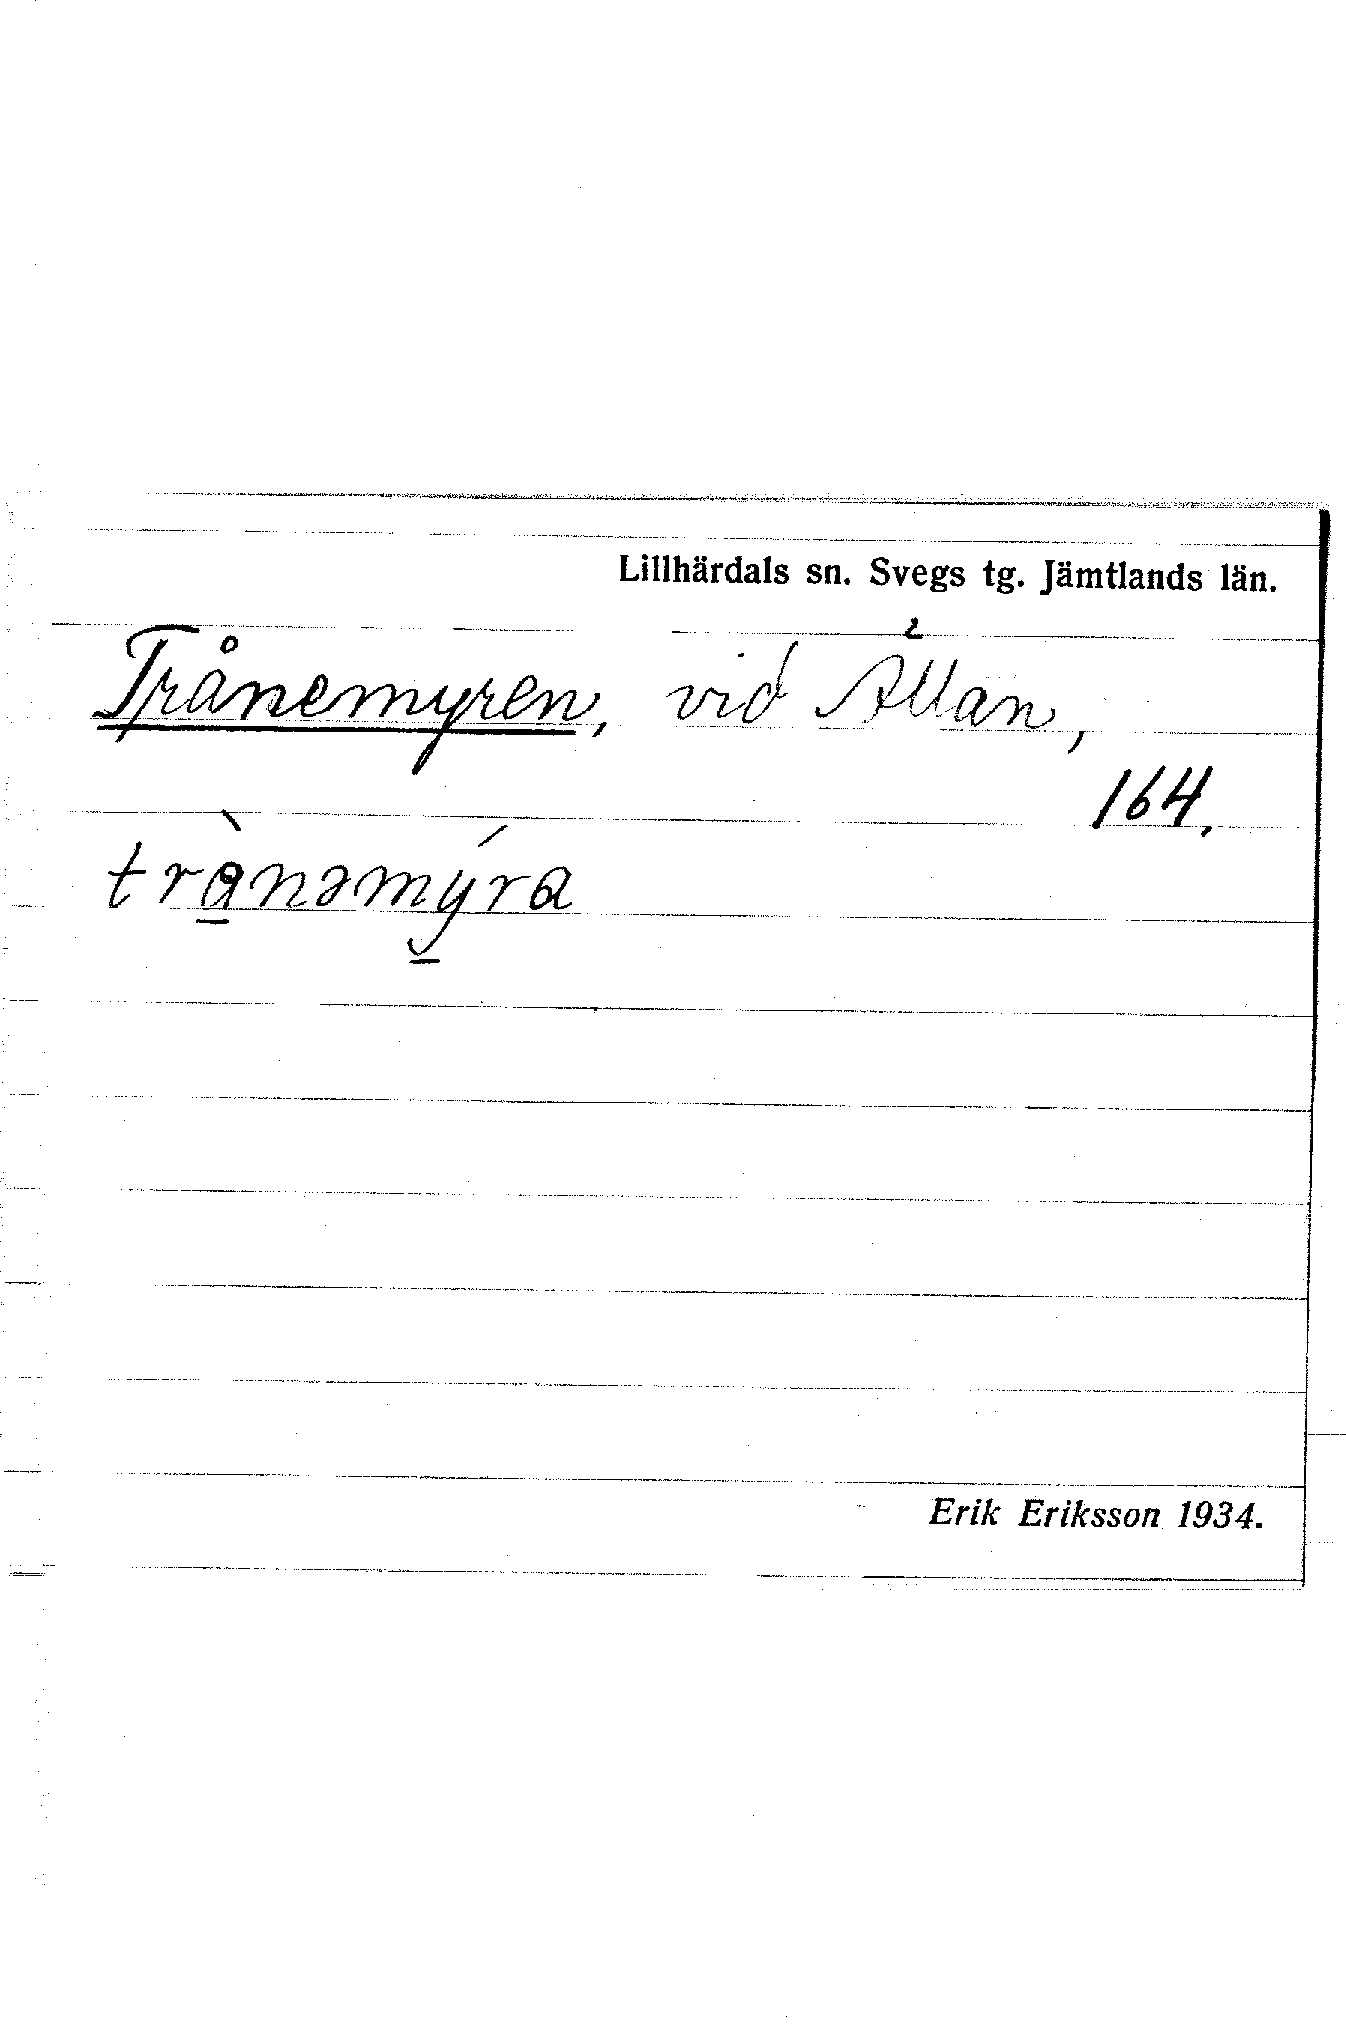 Lillhärdals sn. Svegs tg. Jämtlands län.
Trånemyren, vid Ållan,
164.
trà̱nəmý̱ra
Erik Eriksson 1934.